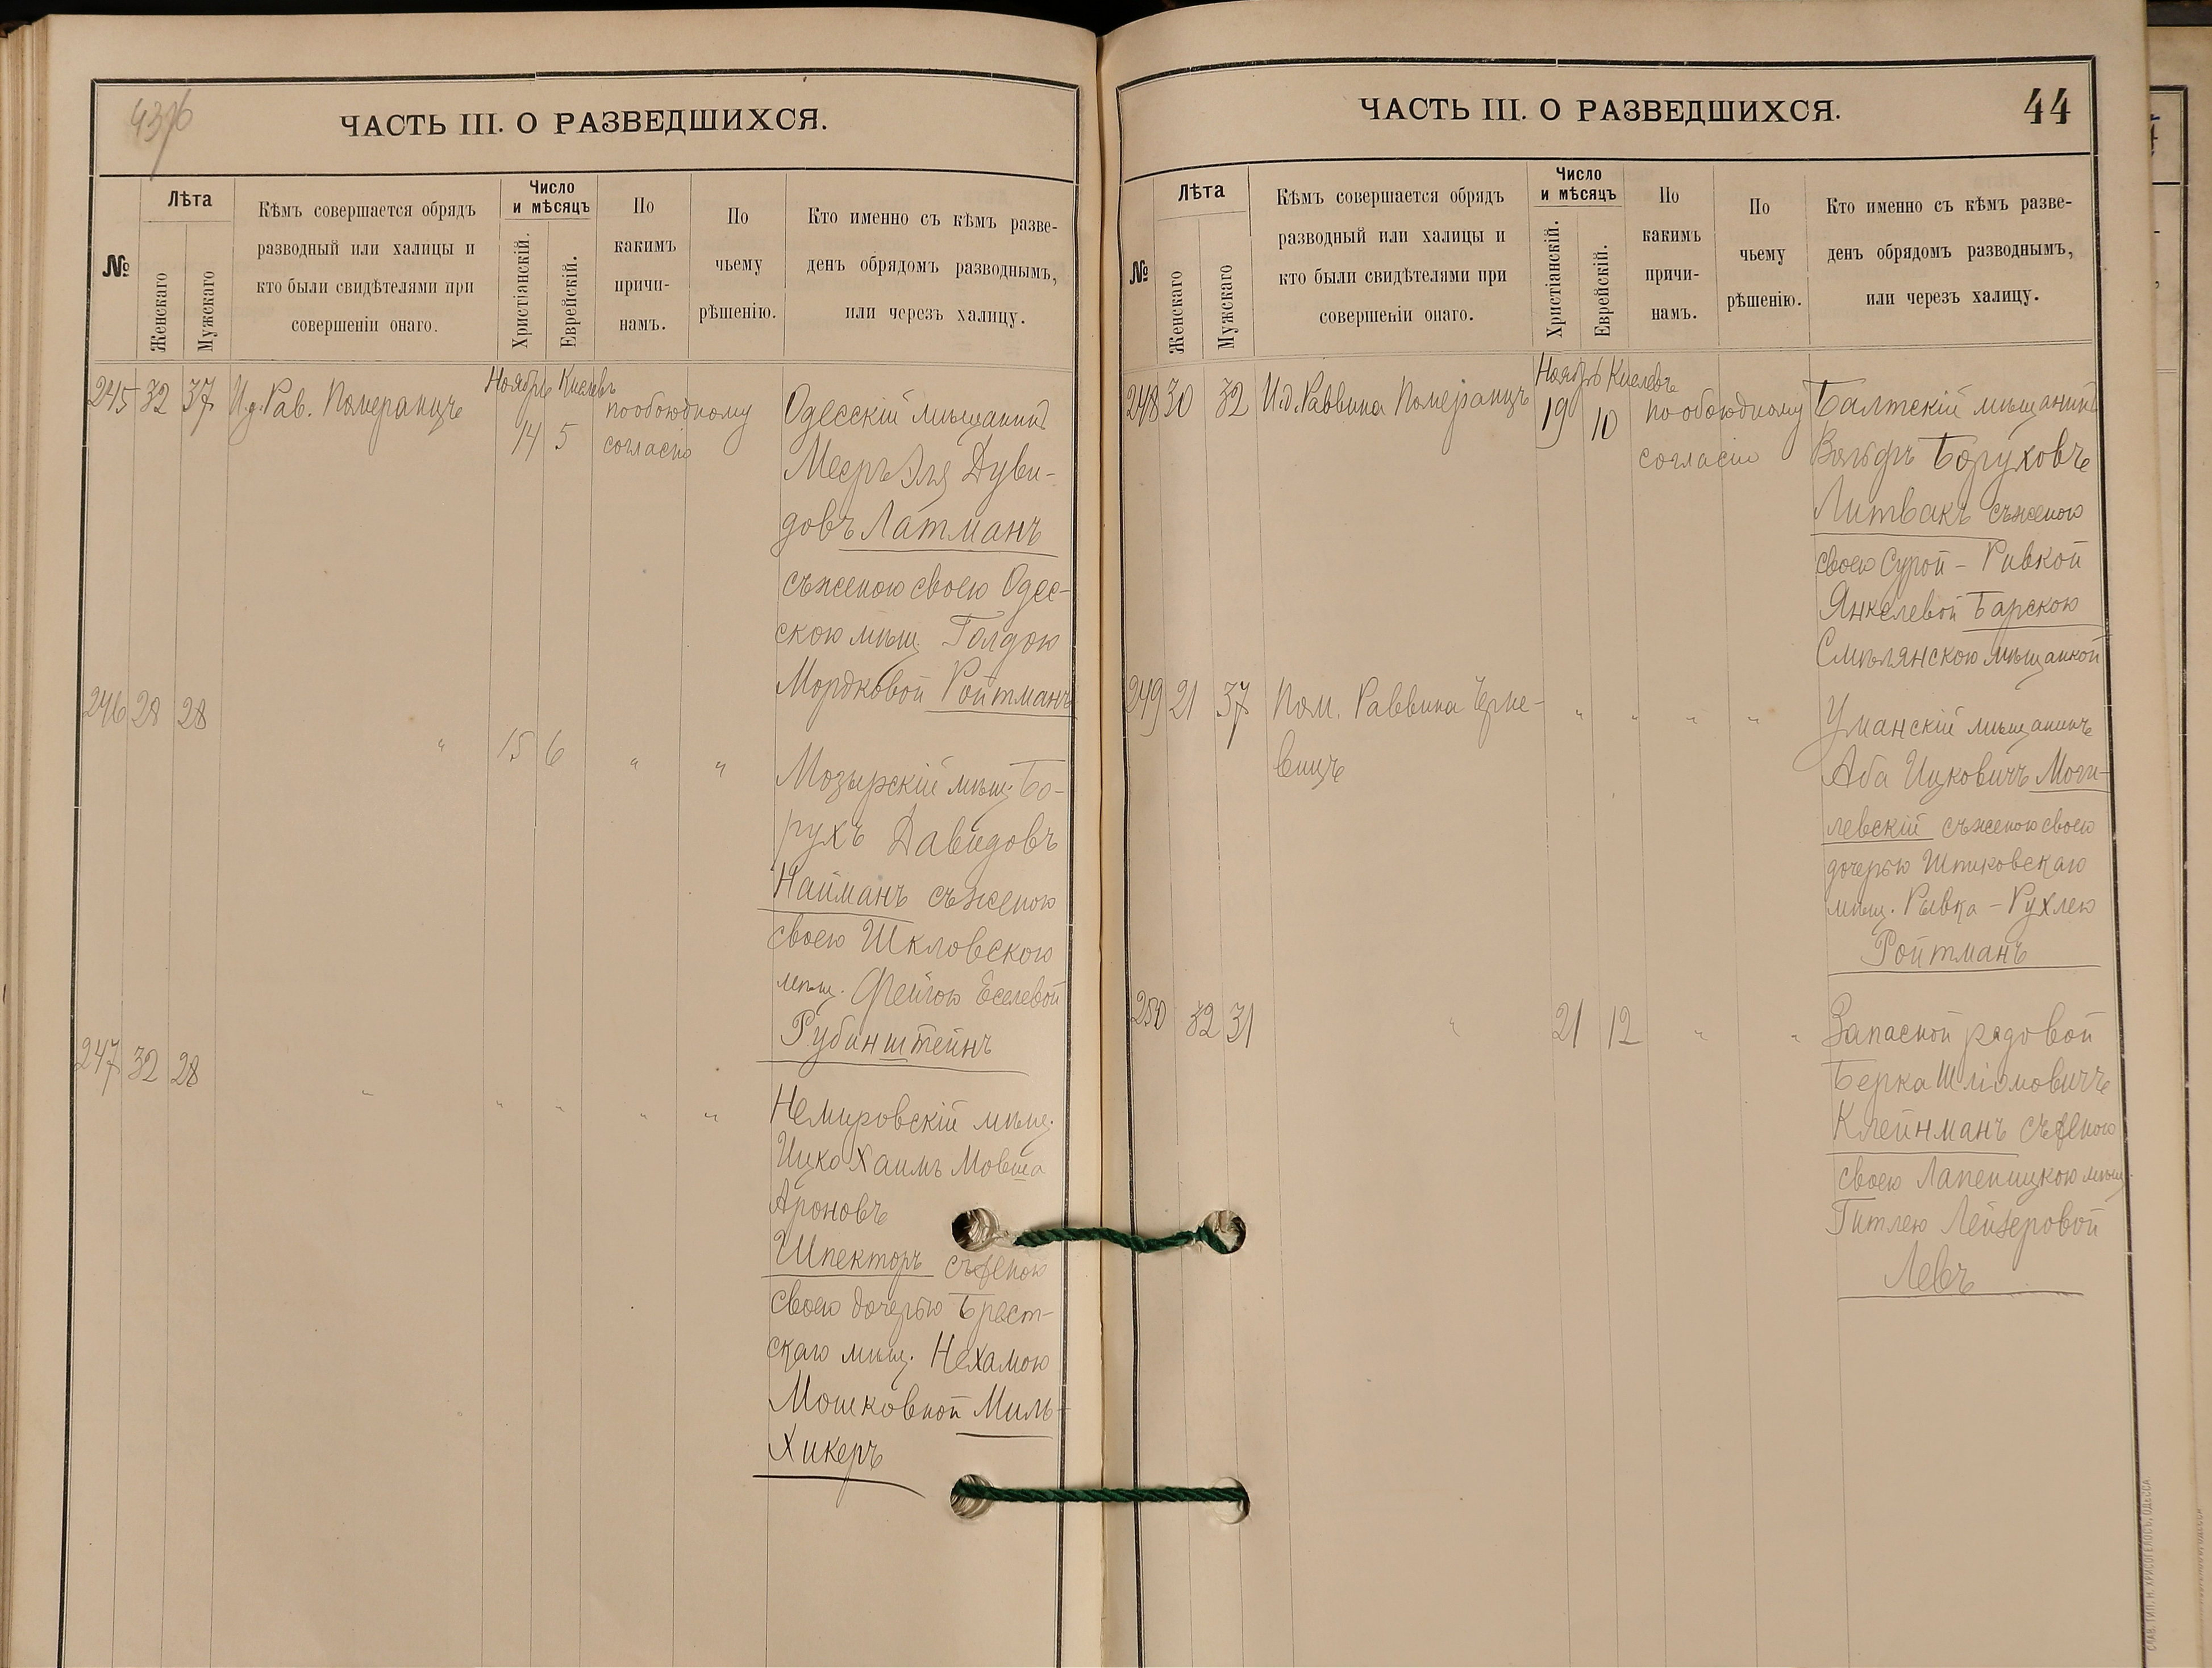 43/6
ЧАСТЬ III. О РАЗВЕДШИХСЯ.
№
Лѣта
Женскаго
Мужскаго
Кѣмъ совершается обрядъ
разводный или халицы и
кто были свидѣтелями при
совершеніи онаго.
Число
и мѣсяцъ
Христіанскій.
Еврейскій.
По
какимъ
причи-
намъ.
По
чьему
рѣшенію.
Кто именно съ кѣмъ разве-
денъ обрядомъ разводнымъ,
или черезъ халицу.
245 32 37 И.д. Рав. Померанцъ
Ноябрь Кислевъ
14 5
по обоюдному
согласію
Одесскій мѣщанинъ
Мееръ Эля Дуви-
довъ Латманъ
съ женою своею Одес-
скою мѣщ. Голдою
Мордковой Ройтманъ
246 28 28 " 15 6 " "
Мозырскій мѣщ. Бо-
рухъ Давидовъ
Найманъ съ женою
своею Шкловскою
мѣщ. Фейгою Еселевой
Рубинштейнъ
247 32 28 " " " " "
Немировскій мѣщ.
Ицко Хаимъ Мовша
Ароновъ
Шпекторъ съ женою
своею дочерью Брест-
скаго мѣщ. Нехамою
Мошковной Миль-
хикеръ
ЧАСТЬ III. О РАЗВЕДШИХСЯ.
44
№
Лѣта
Женскаго
Мужскаго
Кѣмъ совершается обрядъ
разводный или халицы и
кто были свидѣтелями при
совершеніи онаго.
Число
и мѣсяцъ
Христіанскій.
Еврейскій.
По
какимъ
причи-
намъ.
По
чьему
рѣшенію.
Кто именно съ кѣмъ разве-
денъ обрядомъ разводнымъ,
или черезъ халицу.
248 30 32 И.д. Раввина Померанцъ
Ноябрь Кислевъ
19 10
по обоюдному
согласію
Балтскій мѣщанинъ
Вольфъ Боруховъ
Литвакъ съ женою
своею Сурой - Ривкой
Янкелевой Барскою
Смѣлянскою мѣщанкой
249 21 37 Пом. Раввина Черне-
вицъ
" " " "
Уманскій мѣщанинъ
Аба Ицковичъ Моги-
левскій съ женою своею
дочерью
мѣщ. Рывка - Рухлею
Ройтманъ
250 32 31 " 21 12 " "
Запасной рядовой
Берка Шліомовичъ
Клейнманъ съ женою
своею Лапеницкою мѣщ.
Гитлею Лейзеровой
Левъ
СЛАВ. ТИП. Н. ХРИСОГЕЛОСЪ, ОДЕССА